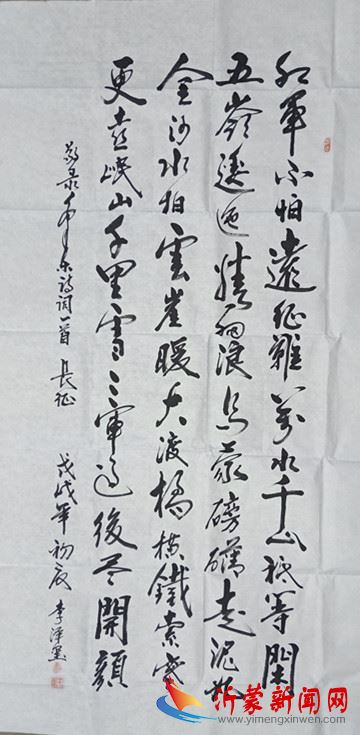 紅軍不怕遠征難萬水千山祗等閑
五嶺逶迤騰細浪烏蒙磅礴走泥丸
金沙水拍雲崖暖大渡橋橫鐵索寒
更喜岷山千里雪三軍過後尽開顏
敬录毛泽东诗词一首 長征 戊戌年初夏 李泽
沂蒙新闻网
www.yimengxinwen.com